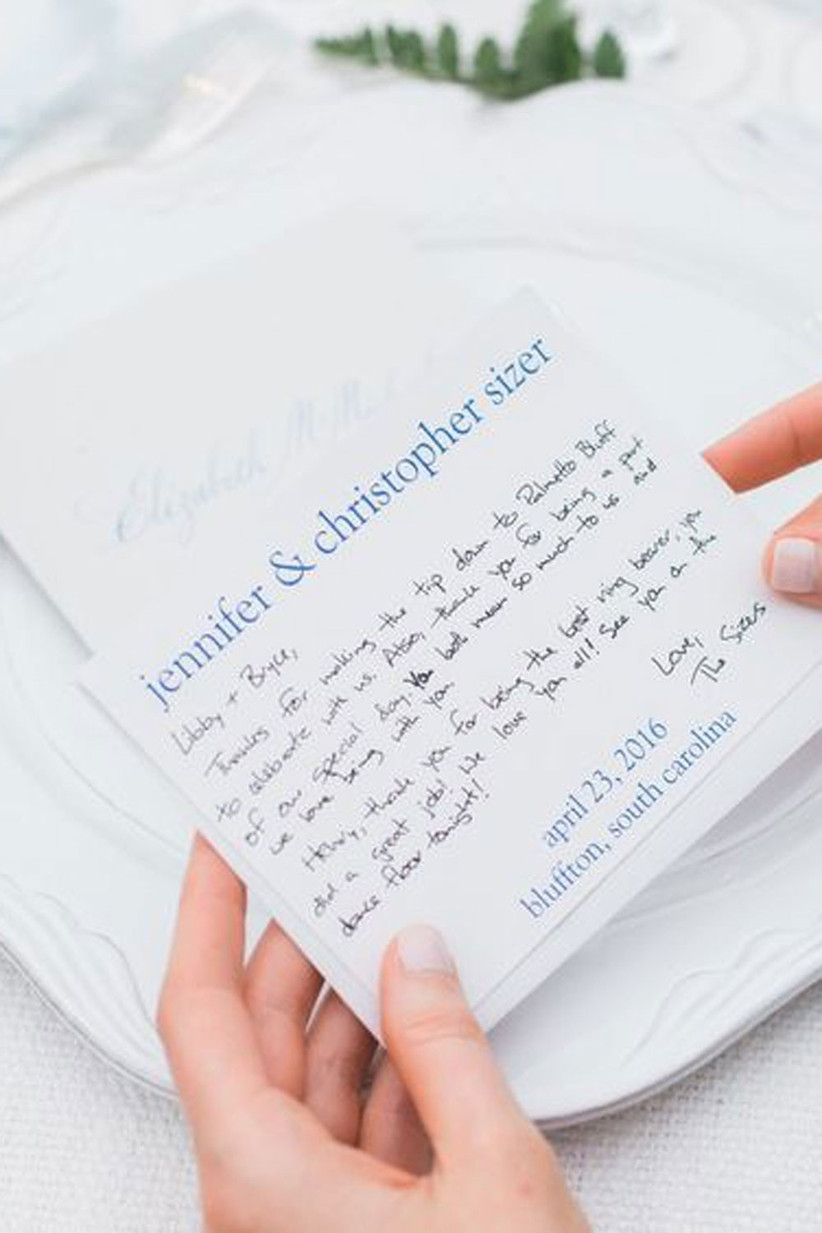 Elizabeth M. M
jennifer & christopher sizer
Libby + Bryce,
Thanks for making the trip down to Palmetto Bluff
to celebrate with us. Also, thank you for being a part
of our special day. You both mean so much to us and
we love being with you.
Henry, thank you for being the best ring bearer, you
did a great job! We love you all! See you on the
dance floor tonight!
Love,
The Sizers
april 23, 2016
bluffton, south carolina